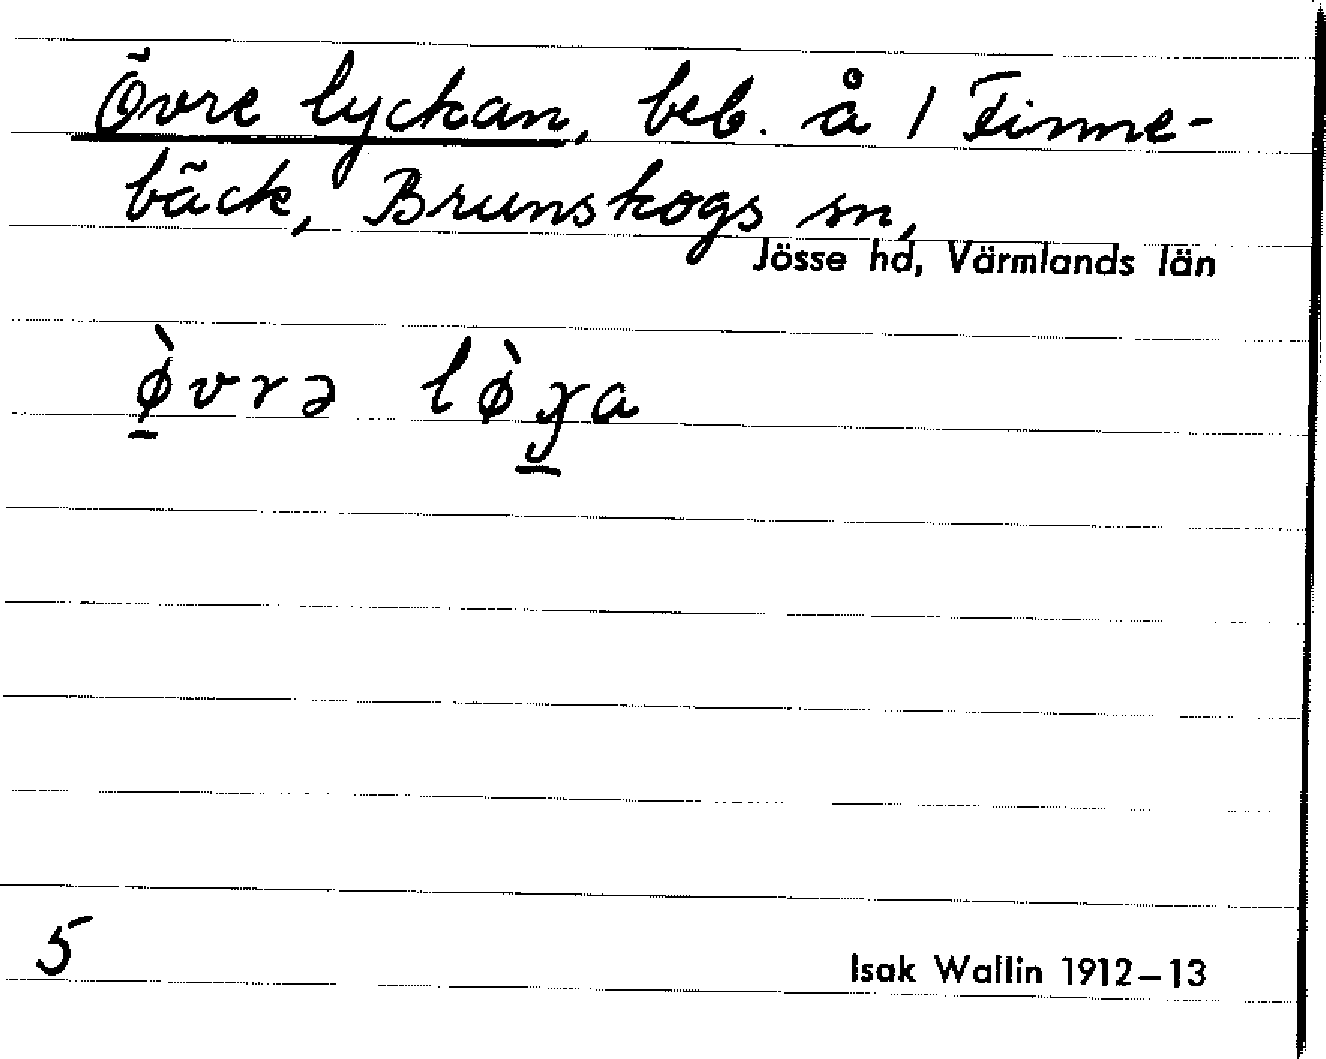 Övre lyckan, beb. å 1 Finne-
bäck, Brunskogs sn,
Jösse hd, Värmlands län
ø̠̀vrə
5
Isak Wallin 1912–13